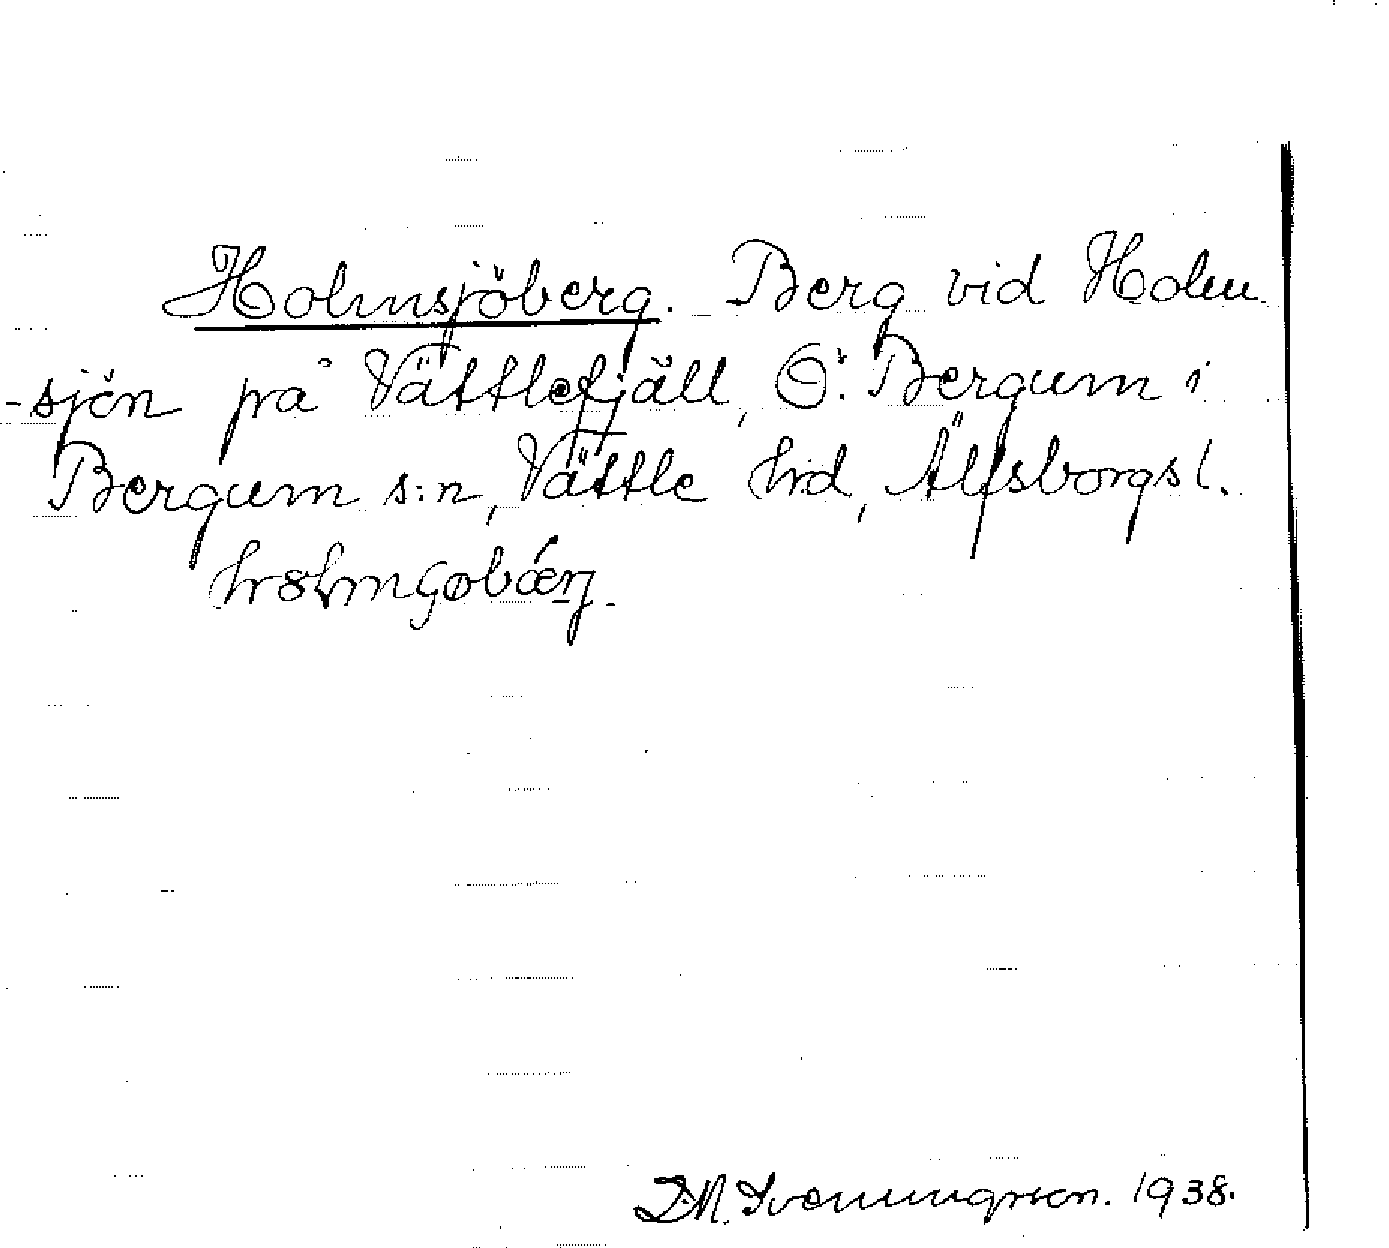 Holmsjöberg. Berg vid Holm
-sjön på Vättlefjäll, Ö. Bergum i
Bergum s:n, Vättle hrd, Älfsborgs l.
1938.